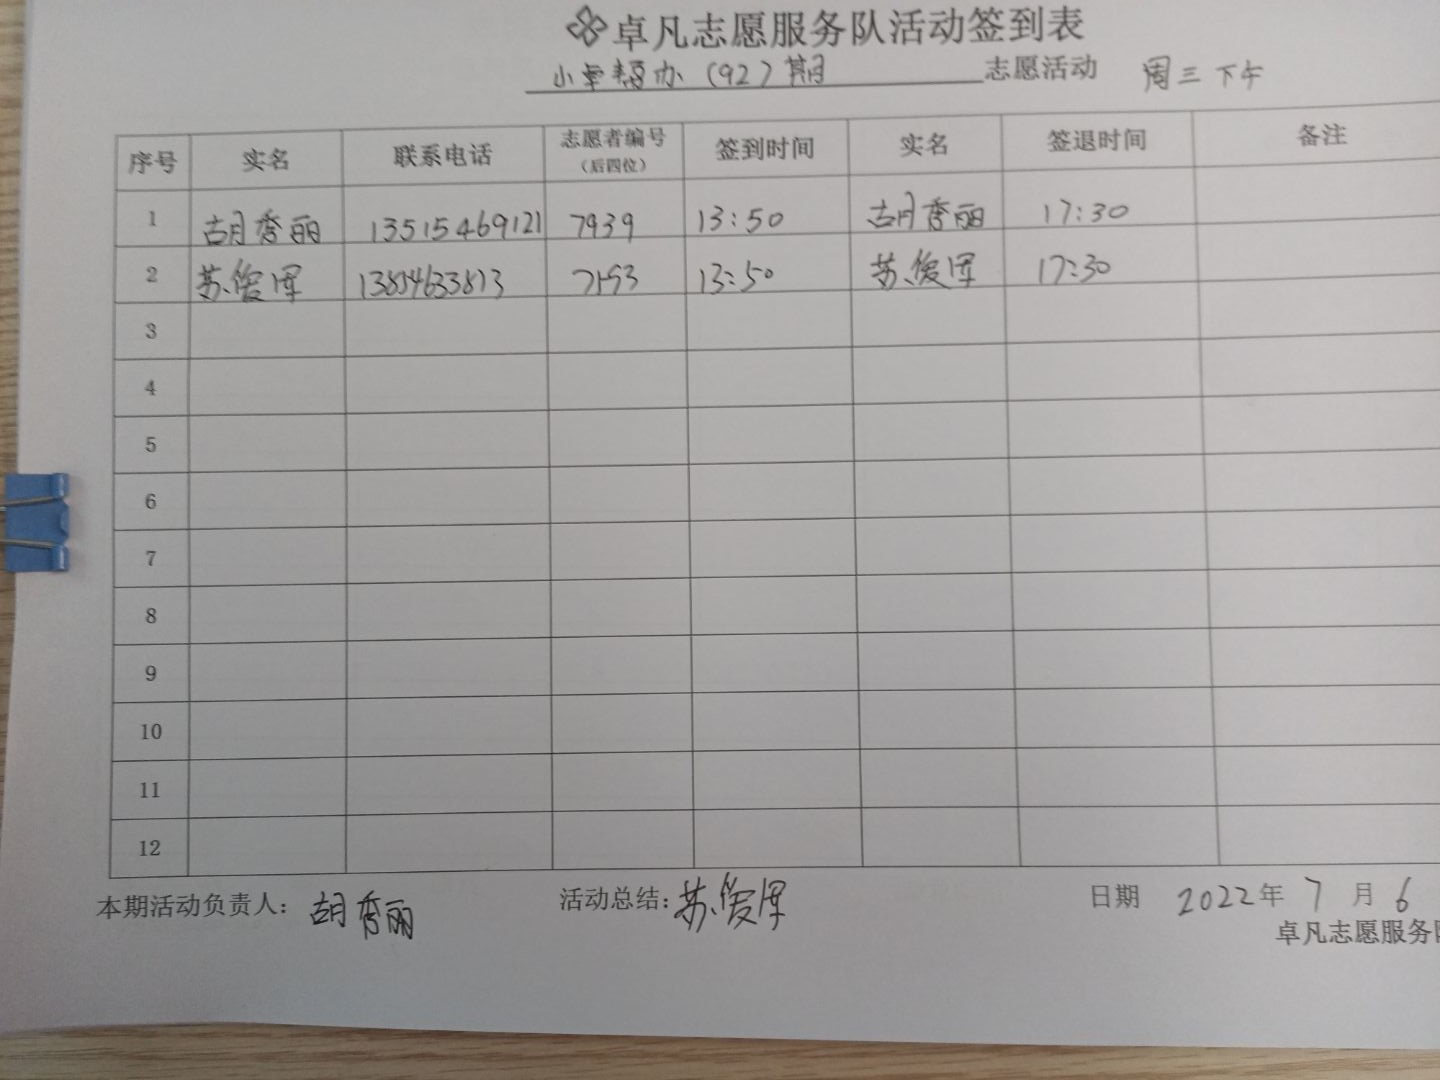 卓凡志愿服务队活动签到表
小卓帮办(92)期 志愿活动 周三下午
序号 实名 联系电话 志愿者编号(后四位) 签到时间 实名 签退时间 备注
1 胡秀丽 13515469121 7939 13:50 胡秀丽 17:30
2 苏俊 13814633813 7153 13:50 苏俊 17:30
3
4
5
6
7
8
9
10
11
12
本期活动负责人: 胡秀丽 活动总结: 苏俊 日期 2022年7月6
卓凡志愿服务